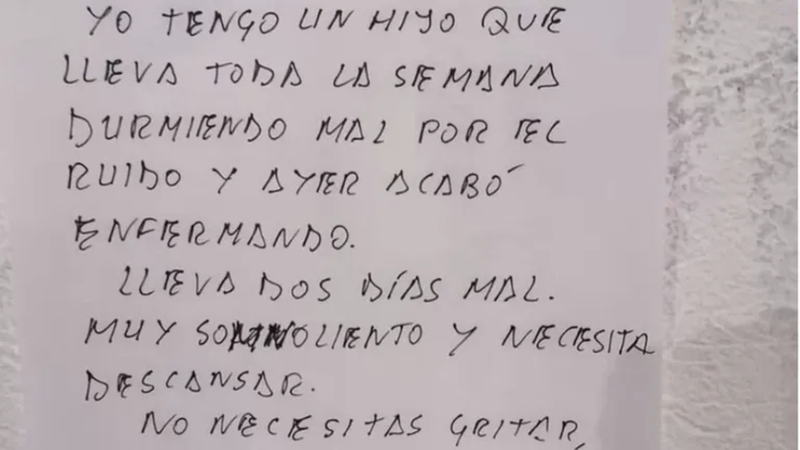 YO TENGO UN HIJO QUE
LLEVA TODA LA SEMANA
DURMIENDO MAL POR EL
RUIDO Y AYER ACABÓ
ENFERMANDO.
LLEVA DOS DÍAS MAL.
MUY SOMNOLIENTO Y NECESITA
DESCANSAR.
NO NECESITAS GRITAR,